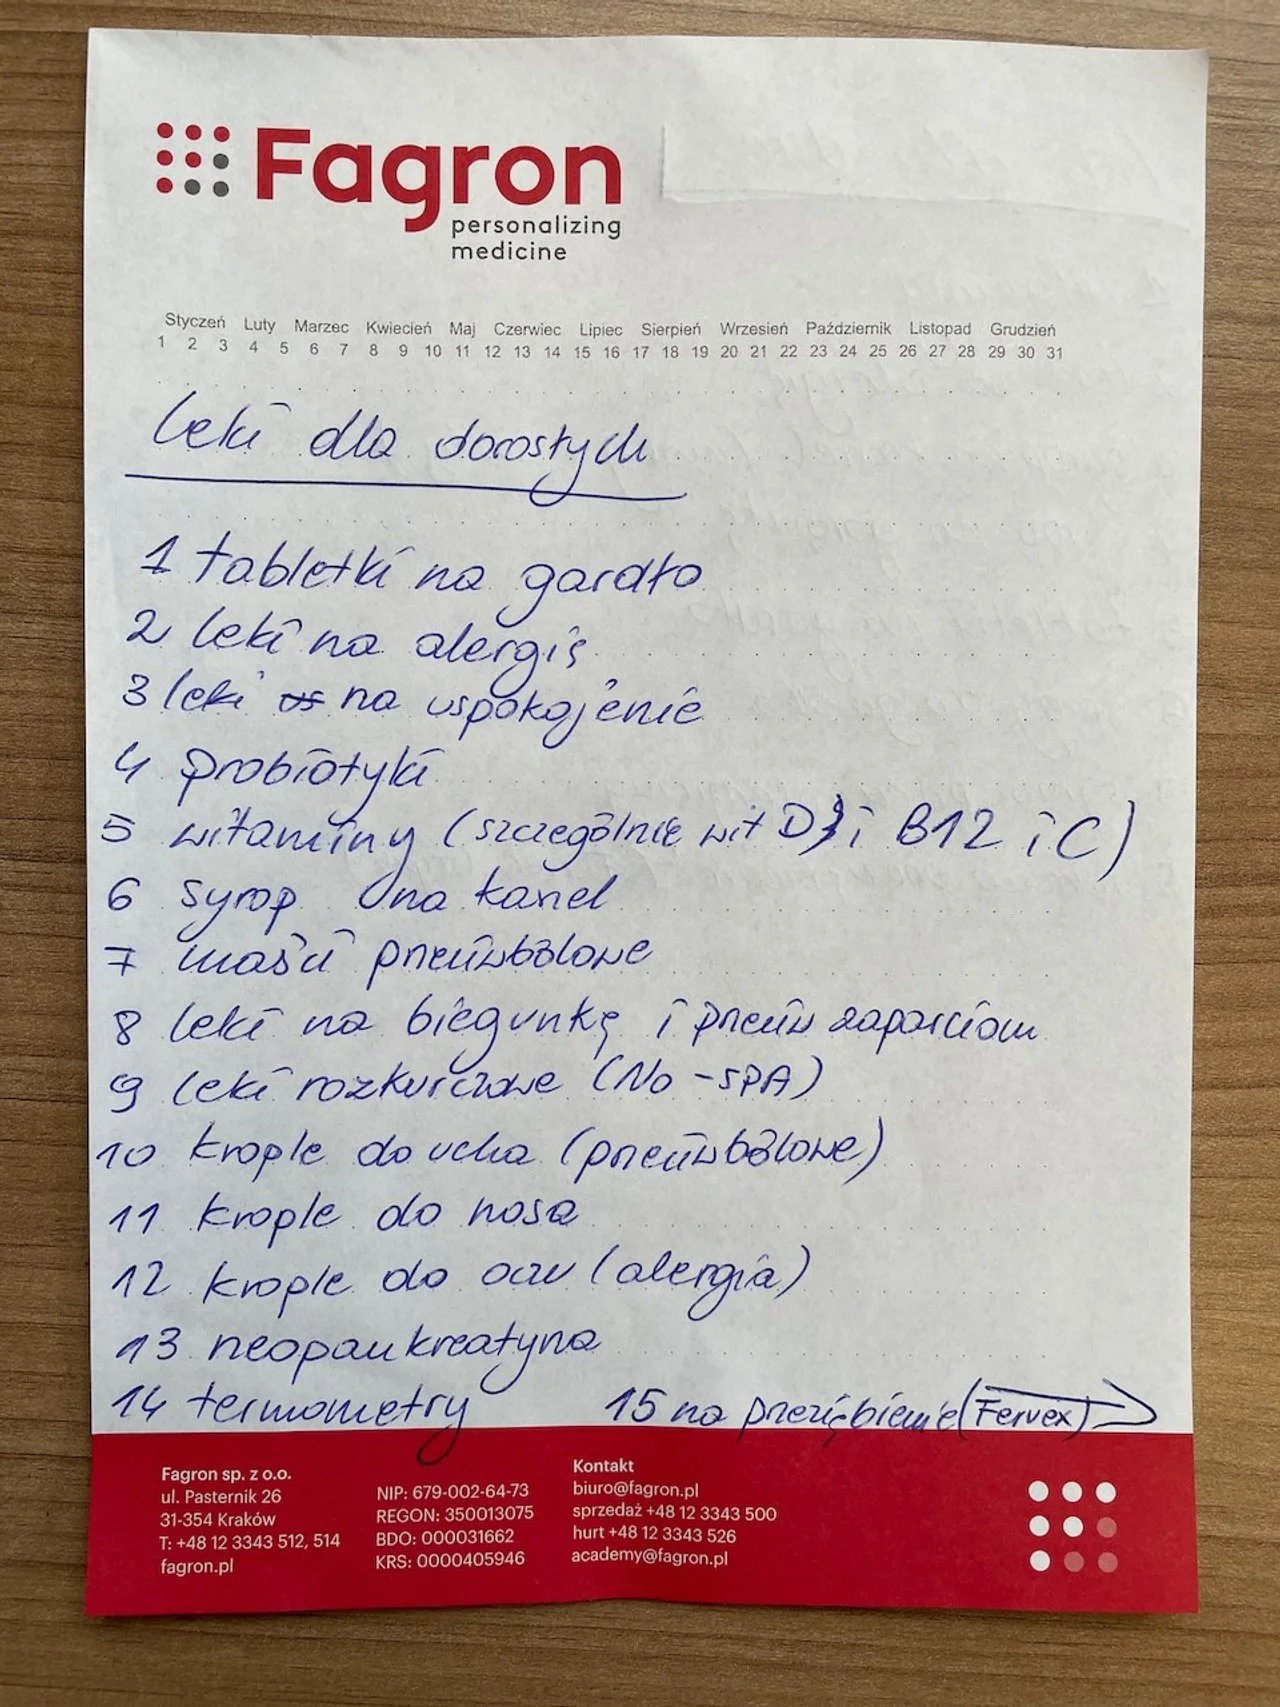 Fagron
personalizing
medicine
Styczeń Luty Marzec Kwiecień Maj Czerwiec Lipiec Sierpień Wrzesień Październik Listopad Grudzień
1 2 3 4 5 6 7 8 9 10 11 12 13 14 15 16 17 18 19 20 21 22 23 24 25 26 27 28 29 30 31
Leki dla dorosłych
1 tabletki na gardło
2 leki na alergię
3 leki na uspokojenie
4 probiotyki
5 witaminy (szczególnie wit D3 i B12 i C)
6 syrop na kaszel
7 maści przeciwbólowe
8 leki na biegunkę i przeciw zaparciom
9 leki rozkurczowe (No-SPA)
10 krople do ucha (przeciwbólowe)
11 krople do nosa
12 krople do oczu (alergia)
13 neopankreatyna
14 termometry 15 na przeziębienie (Fervex)
Fagron sp. z o.o.
ul. Pasternik 26
31-354 Kraków
T: +48 12 3343 512, 514
fagron.pl
NIP: 679-002-64-73
REGON: 350013075
BDO: 000031662
KRS: 0000405946
Kontakt
biuro@fagron.pl
sprzedaż +48 12 3343 500
hurt +48 12 3343 526
academy@fagron.pl